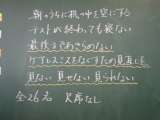 朝のうちに机の中を空にする
テストが終わっても寝ない
最後まであきらめない
ケアレスミスをなくすため見直しも
見ない 見せない 見られない
全26名 欠席なし